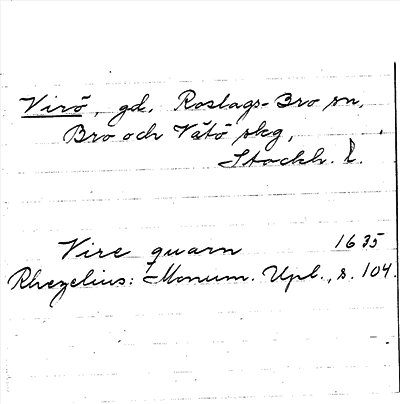 Virö, gd, Roslags-Bro sn,
Bro och Vätö skg,
Stockh. l.
Vire quarn 1635
Rhezelius: Monum. Upl., s. 104.